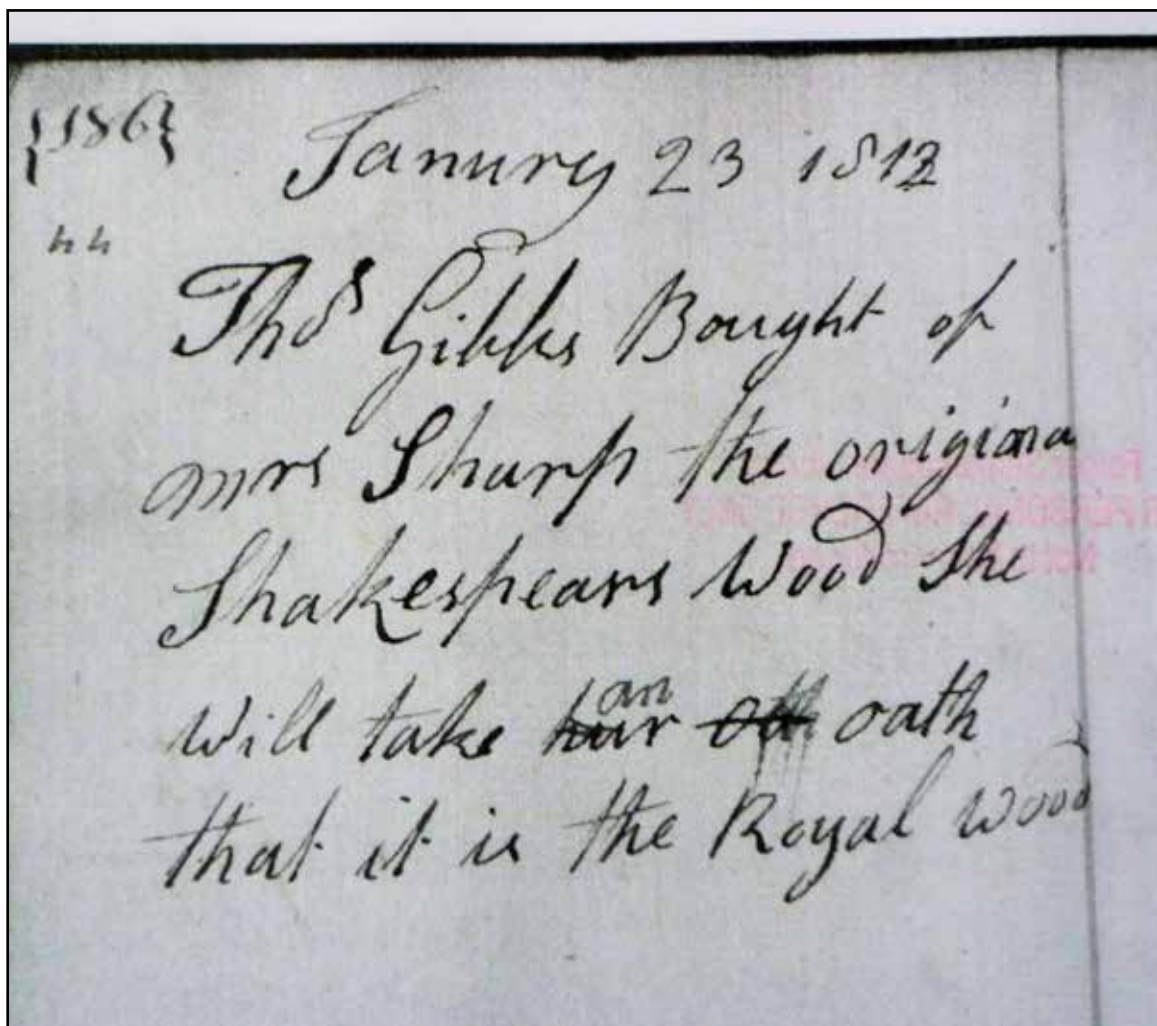 {186}
Janury 23 1812
44
Thos Gibbs Bought of
mrs Sharp the origina
Shakespears Wood She
will take an oath
that it is the Royal Wood